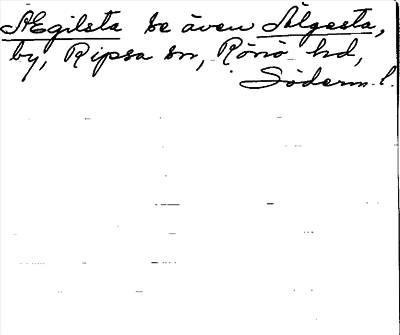 AEgilsta se även Älgesta,
by, Ripsa sn, Rönö hd,
Söderm. l.